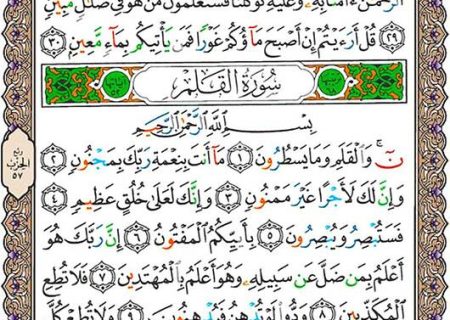 ٱلرَّحْمَٰنُ ءَامَنَّا بِهِۦ وَعَلَيْهِ تَوَكَّلْنَا فَسَتَعْلَمُونَ مَنْ هُوَ فِى ضَلَٰلٍ مُّبِينٍ
٢٩ قُلْ أَرَءَيْتُمْ إِنْ أَصْبَحَ مَآؤُكُمْ غَوْرًا فَمَن يَأْتِيكُم بِمَآءٍ مَّعِينٍ ٣٠
سُورَةُ القَلَمِ
بِسْمِ ٱللَّهِ ٱلرَّحْمَٰنِ ٱلرَّحِيمِ
نٓ ۚ وَٱلْقَلَمِ وَمَا يَسْطُرُونَ ١ مَآ أَنتَ بِنِعْمَةِ رَبِّكَ بِمَجْنُونٍ ٢
وَإِنَّ لَكَ لَأَجْرًا غَيْرَ مَمْنُونٍ ٣ وَإِنَّكَ لَعَلَىٰ خُلُقٍ عَظِيمٍ ٤
فَسَتُبْصِرُ وَيُبْصِرُونَ ٥ بِأَييِّكُمُ ٱلْمَفْتُونُ ٦ إِنَّ رَبَّكَ هُوَ
أَعْلَمُ بِمَن ضَلَّ عَن سَبِيلِهِۦ وَهُوَ أَعْلَمُ بِٱلْمُهْتَدِينَ ٧ فَلَا تُطِعِ
ٱلْمُكَذِّبِينَ ٨ وَدُّوا۟ لَوْ تُدْهِنُ فَيُدْهِنُونَ ٩ وَلَا تُطِعْ كُلَّ
ربع
الحزب
٥٧